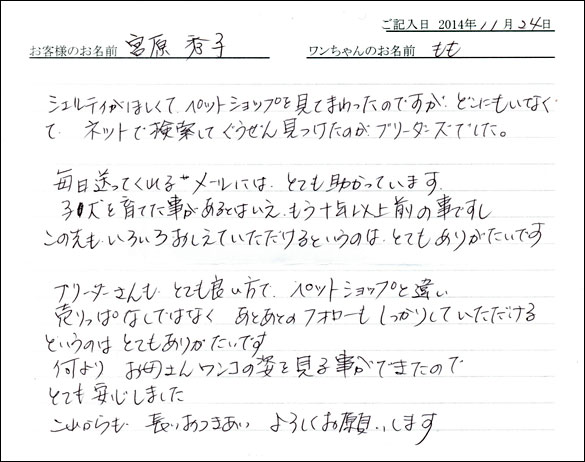 ご記入日 2014年 11月 24日
お客様のお名前 宮原 秀子 ワンちゃんのお名前 もも
シェルティがほしくて ペットショップを見てまわったのですが どこにもいなく
て ネットで検索してぐうぜん見つけたのが ブリーダーズでした。
毎日送ってくれる メールには、とても助かっています
子犬を育てた事があるとはいえ もう十年以上前の事ですし
この先も いろいろおしえていただけるというのは とてもありがたいです
ブリーダーさんも とても良い方で ペットショップと違い
売りっぱなしではなく あとあとのフォローもしっかりしていただける
というのは とてもありがたいです
何より お母さんワンコの姿を見る事ができたので
とても安心しました
これからも 長いおつきあい よろしくお願いします